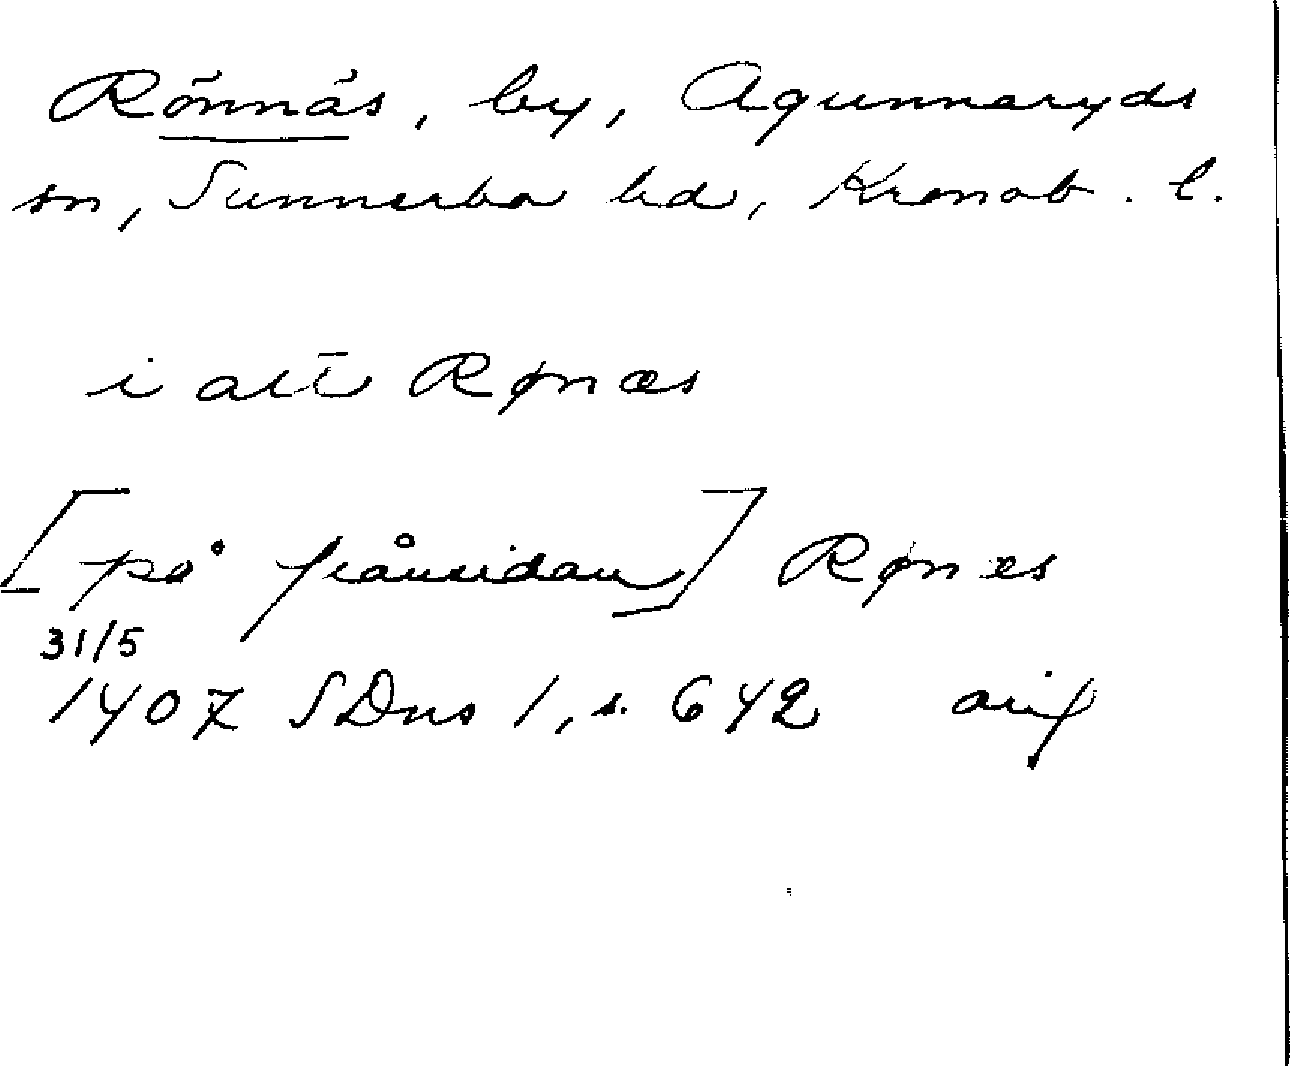 Rönnäs, by, Agunnaryds
sn, Sunnerbo hd, Kronob. l.
i att Rønæs
[på frånsidan] Rønæs
31/5
1407 SDns 1, s. 642 orig